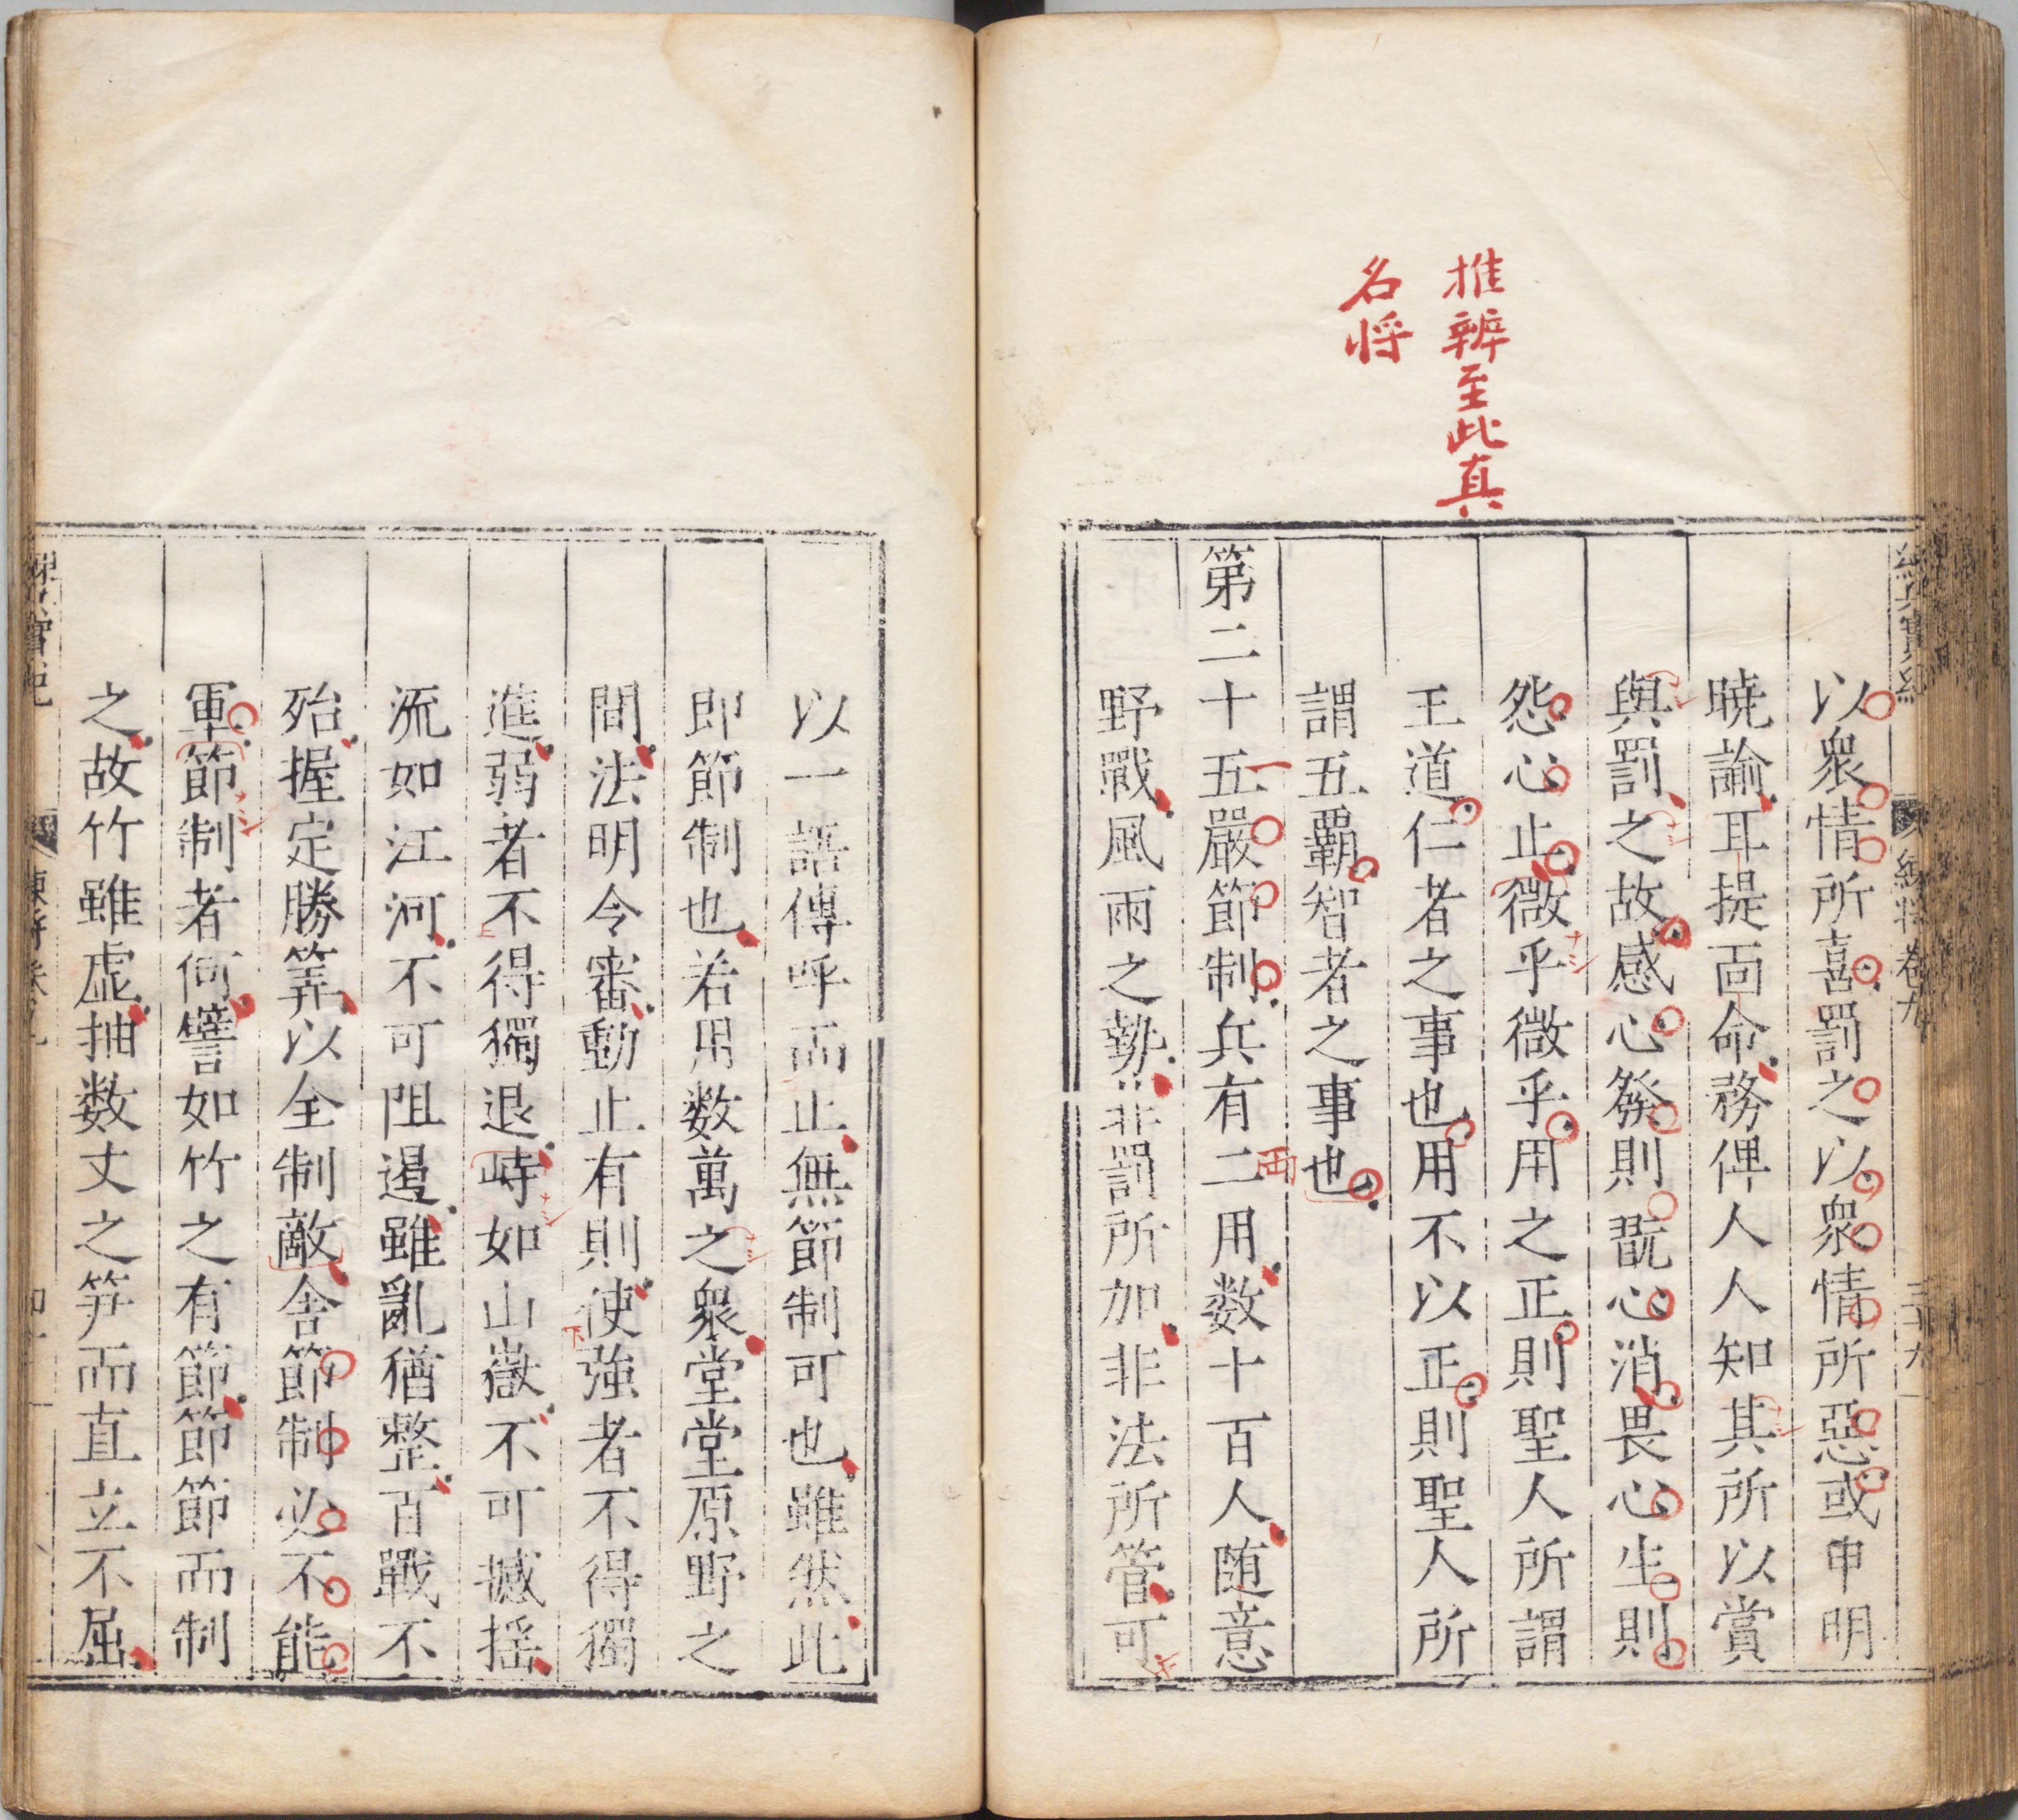 推辨至此真
名将
以衆情所喜罰之以衆情所惡或申明
曉諭耳提面命務俾人人知其所以賞
與罰之故感心發則翫心消畏心生則
怨心止微乎微乎用之正則聖人所謂
王道仁者之事也用不以正則聖人所
謂五覇智者之事也
第二十五嚴節制兵有二用数十百人随意
野戰風雨之勢非罰所加非法所管可
以一語傳呼而止無節制可也雖然此
即節制也若用数萬之衆堂堂原野之
間法明令審動止有則使強者不得獨
進弱者不得獨退峙如山嶽不可撼揺
流如江河不可阻遏雖亂猶整百戰不
殆握定勝筭以全制敵舎節制必不能
軍節制者何譬如竹之有節節節而制
之故竹雖虚抽数丈之笋而直立不屈